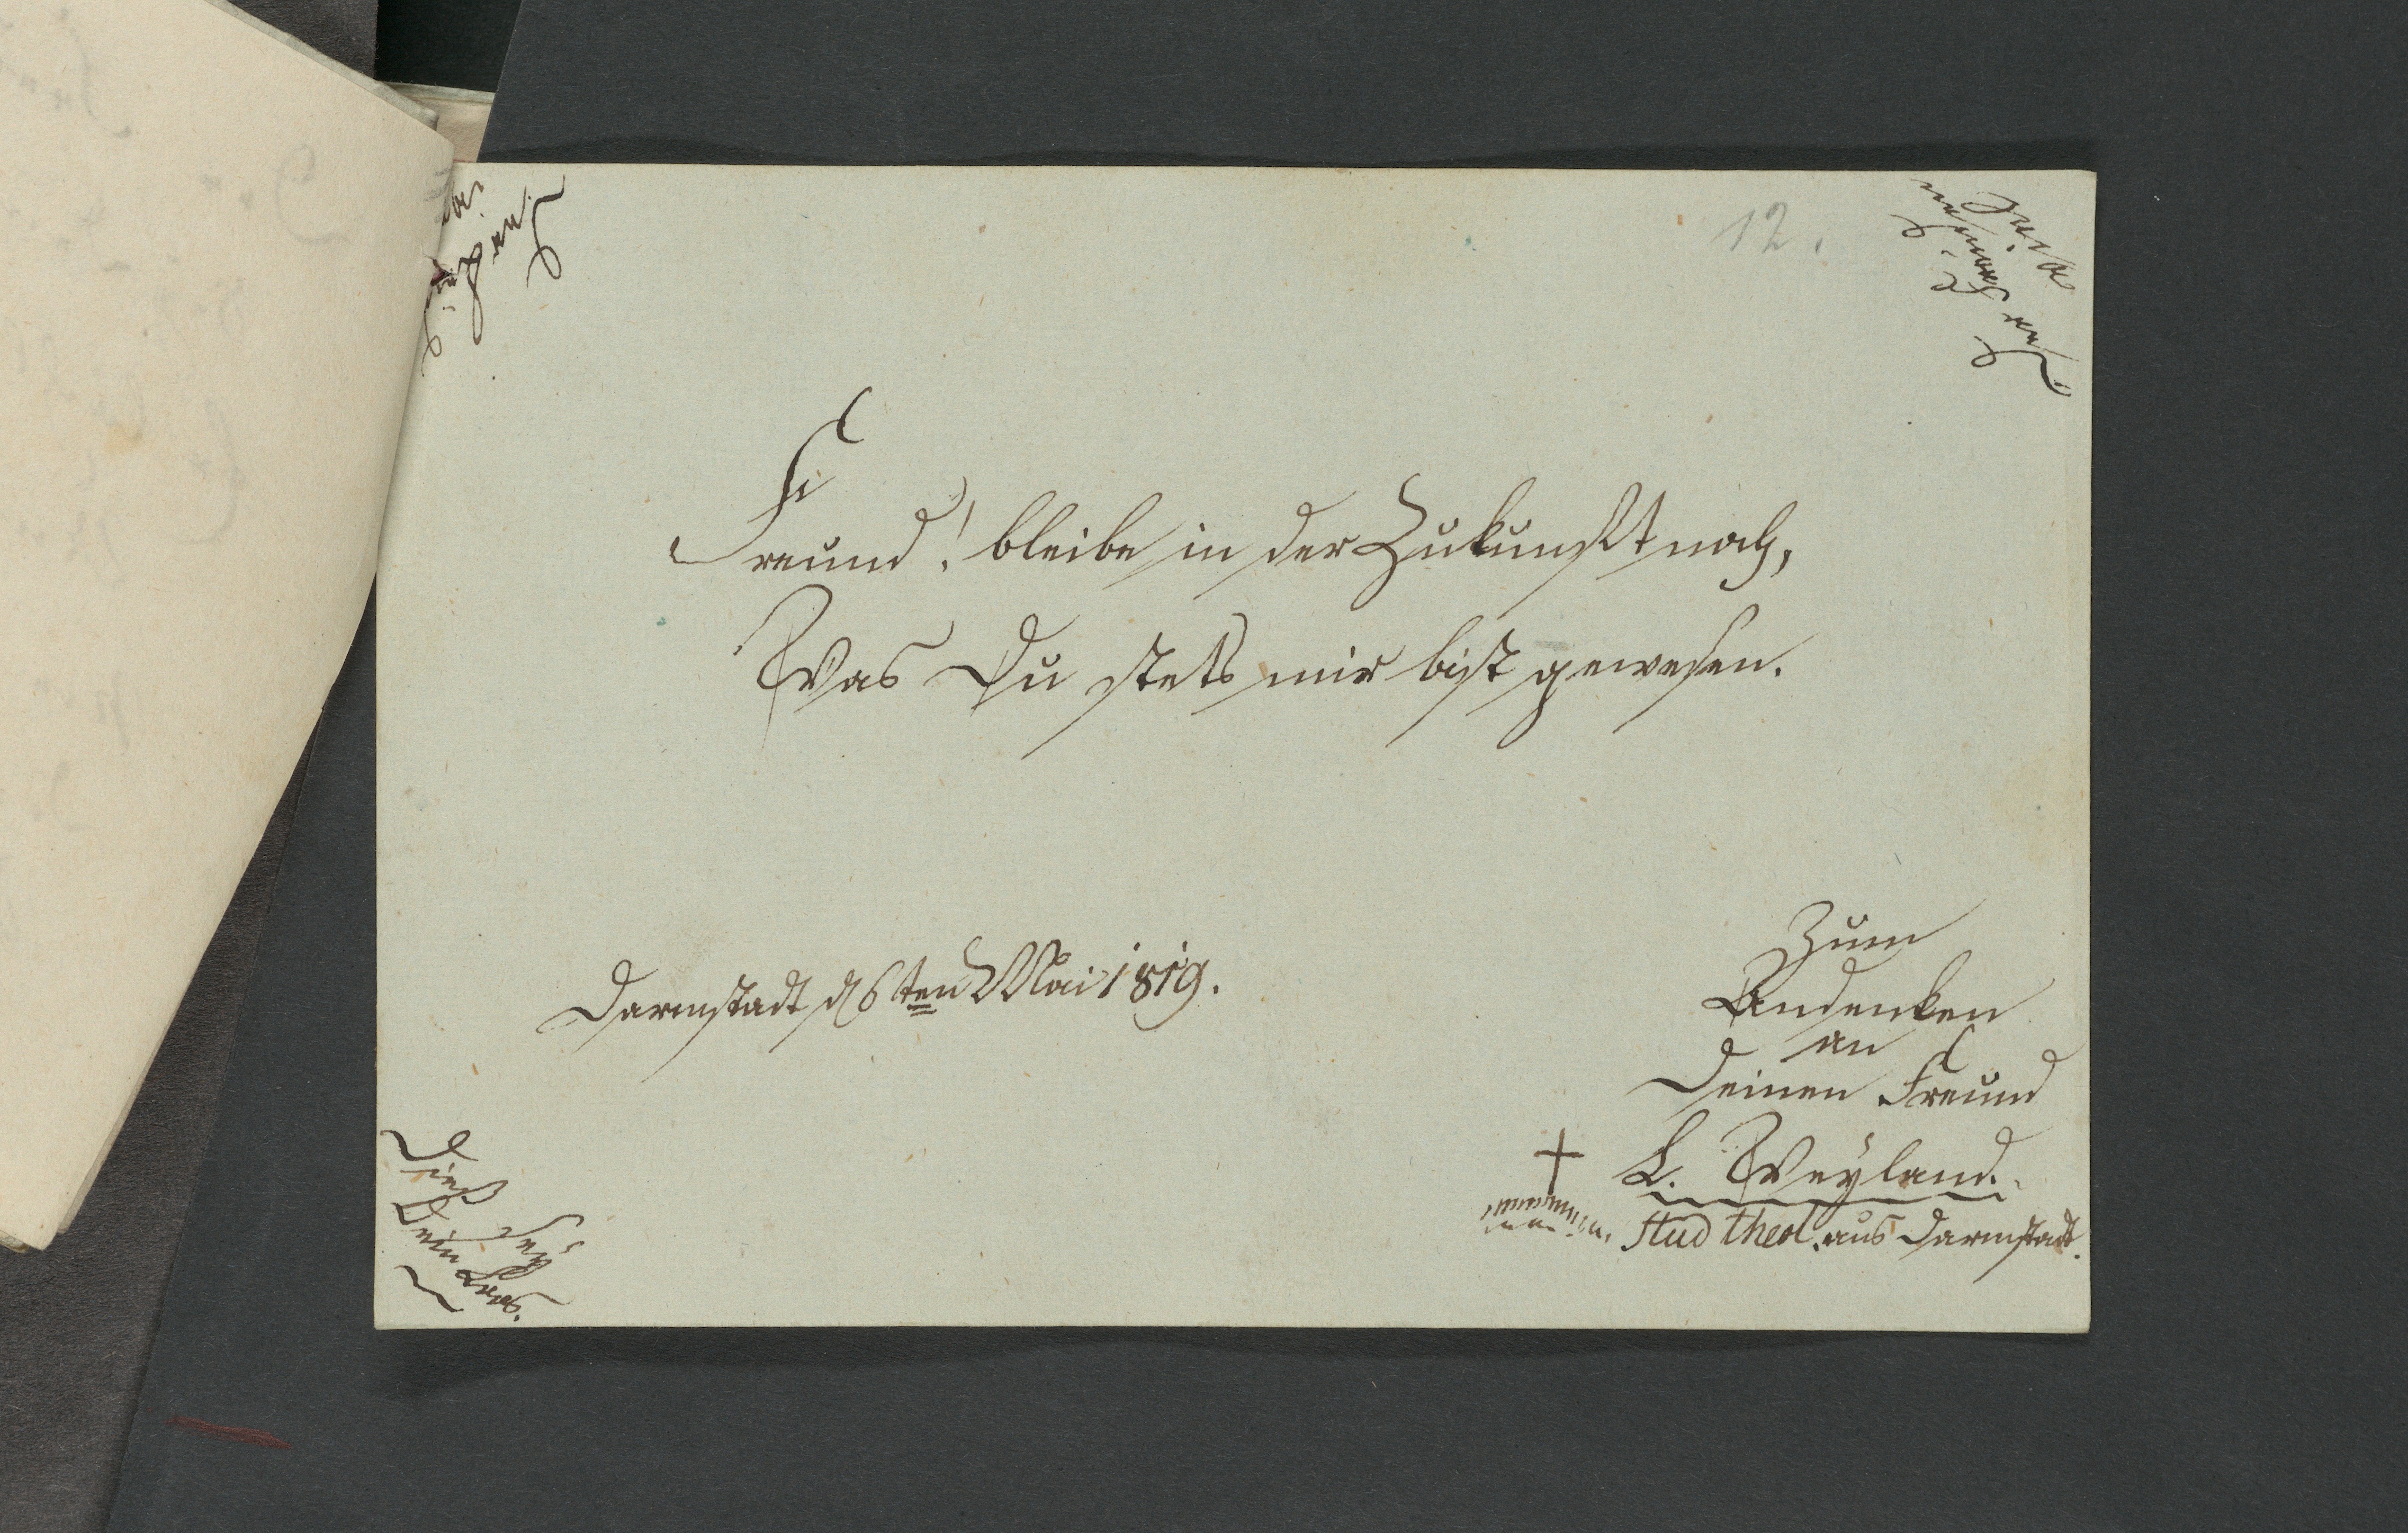 12.
Freund! bleibe in der Zukunft noch,
Was Du stets mir bist gewesen.
Darmstadt d 6ten Mai 1819.
Zum
Andenken
an
Deinen Freund
L. Weyland.
stud theol. aus Darmstadt.
Dieß sey
Dein Loos.